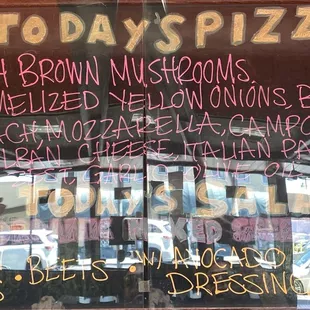 TODAY'S PIZZ
H BROWN MUSHROOMS,
MELIZED YELLOW ONIONS, B
ACH, MOZZARELLA, CAMPO
LBAN CHEESE, ITALIAN PA
OLIVE OIL
TODAY'S SALA
MIXED
• BEETS • W/ AVOCADO
DRESSING